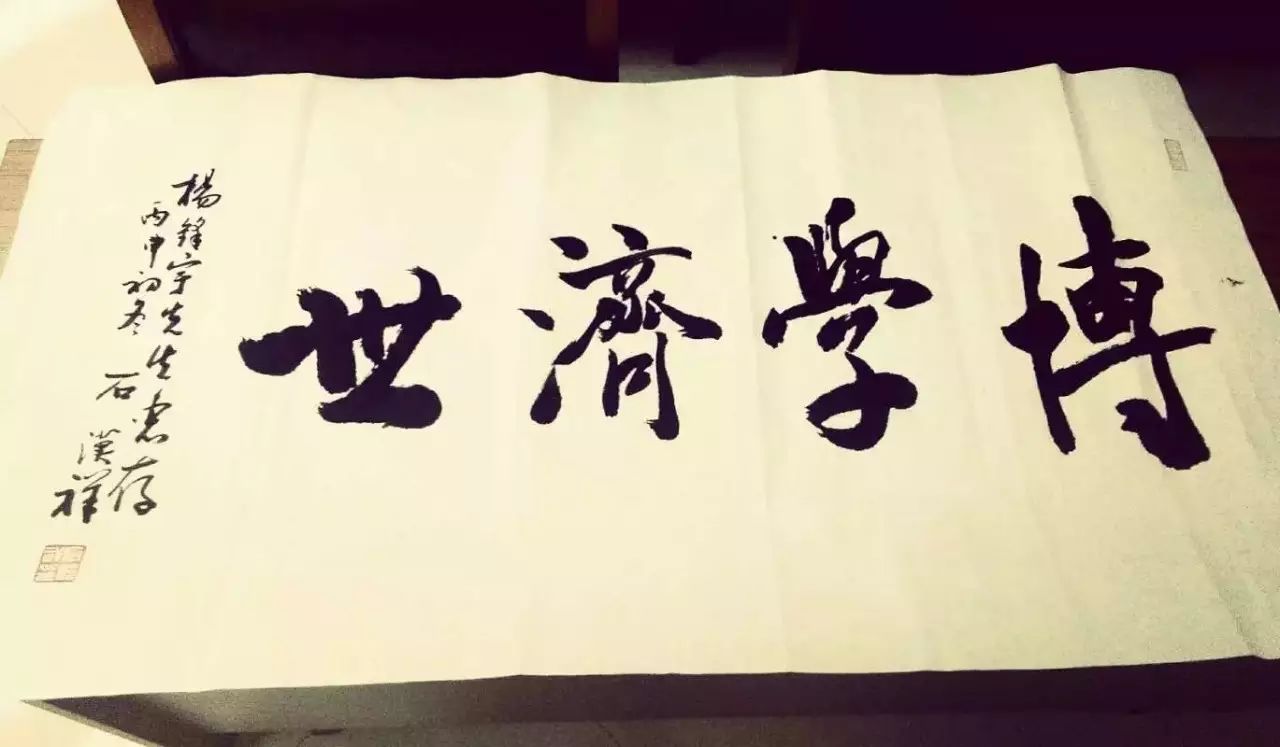 博學濟世
楊鋒宇先生惠存
丙申初冬 石漢祥